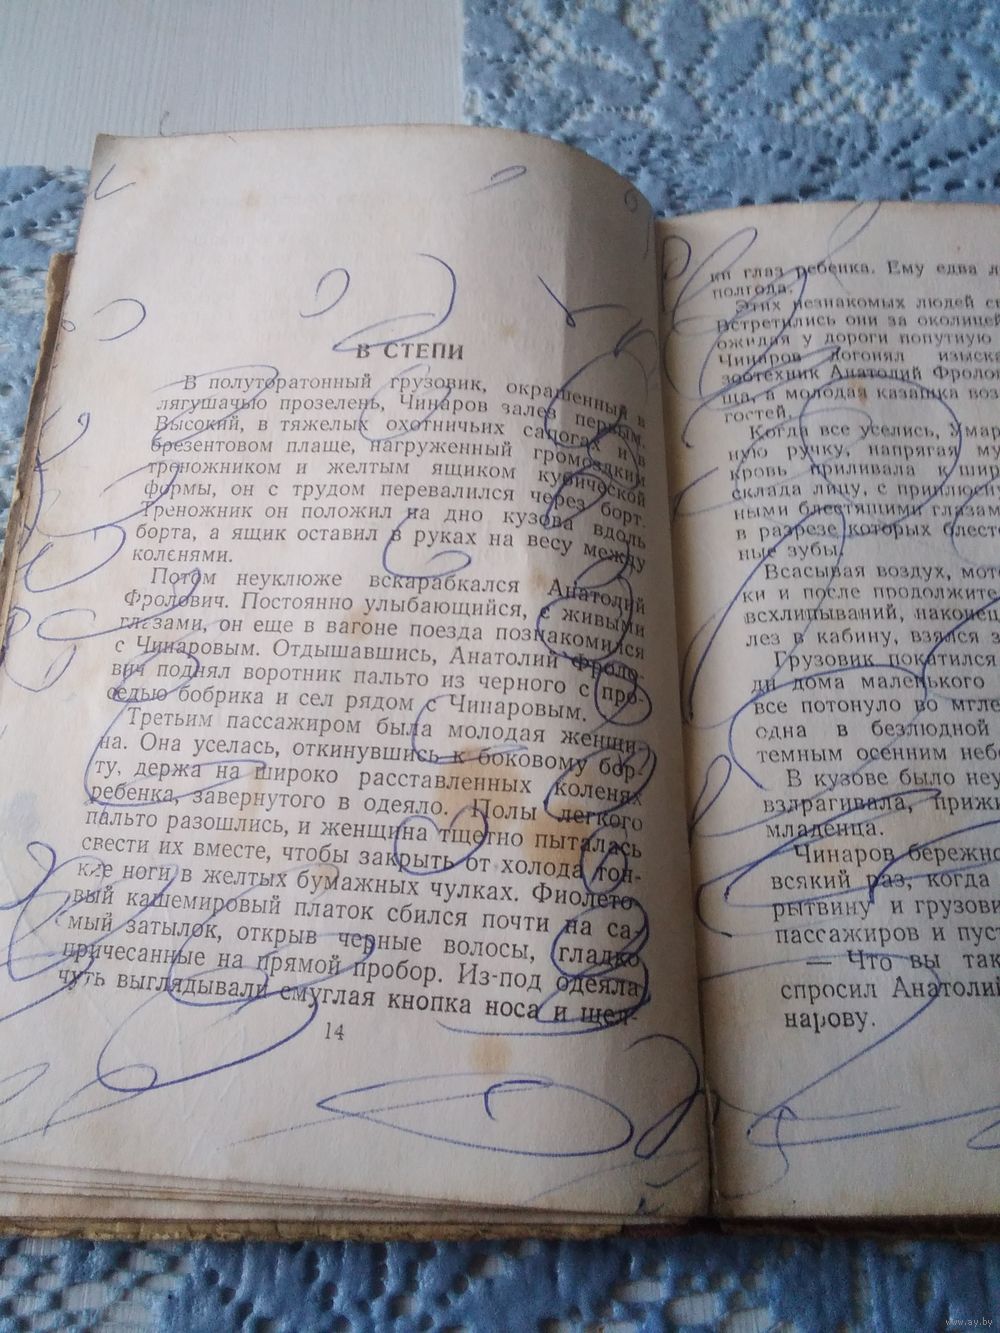 В СТЕПИ
В полуторатонный грузовик, окрашенный в
лягушачью прозелень, Чинаров залез первым.
Высокий, в тяжелых охотничьих сапогах и в
брезентовом плаще, нагруженный громоздким
треножником и желтым ящиком кубической
формы, он с трудом перевалился через борт.
Треножник он положил на дно кузова вдоль
борта, а ящик оставил в руках на весу между
коленями.
Потом неуклюже вскарабкался Анатолий
Фролович. Постоянно улыбающийся, с живыми
глазами, он еще в вагоне поезда познакомился
с Чинаровым. Отдышавшись, Анатолий Фроло-
вич поднял воротник пальто из черного с про-
седью бобрика и сел рядом с Чинаровым.
Третьим пассажиром была молодая женщи-
на. Она уселась, откинувшись к боковому бор-
ту, держа на широко расставленных коленях
ребенка, завернутого в одеяло. Полы легкого
пальто разошлись, и женщина тщетно пыталась
свести их вместе, чтобы закрыть от холода тон-
кие ноги в желтых бумажных чулках. Фиолето-
вый кашемировый платок сбился почти на са-
мый затылок, открыв черные волосы, гладко
причесанные на прямой пробор. Из-под одеяла
чуть выглядывали смуглая кнопка носа и щел-
14
ки глаз ребенка. Ему едва
полгода.
Этих незнакомых людей
Встретились они за околицей
ожидая у дороги попутную
Чинаров догонял изыска
зоотехник Анатолий Фролов
ща, а молодая казашка воз
гостей.
Когда все уселись, Умар
ную ручку, напрягая му
кровь приливала к шир
склада лицу, с приплюсн
ными блестящими глазам
в разрезе которых блест
ные зубы.
Всасывая воздух, мото
ки и после продолжите
всхлипываний, наконец
лез в кабину, взялся з
Грузовик покатился
ди дома маленького
все потонуло во мгле
одна в безлюдной
темным осенним небо
В кузове было неу
вздрагивала, прижи
младенца.
Чинаров бережно
всякий раз, когда
рытвину и грузови
пассажиров и пуст
— Что вы так
спросил Анатолий
нарову.
www.ay.by